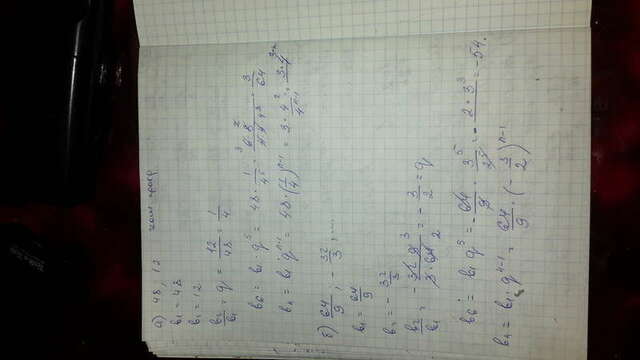 геом. прогр
а) 48, 12
b₁ = 48
b₂ = 12
b₂/b₁ = q = 12/48 = 1/4
b₆ = b₁ · q⁵ = 48 · 1/4⁵ = 3/64
bₙ = b₁ q^(n-1) = 48 · (1/4)^(n-1) = 3 · 4²/4^(n-1) = 3 · 4^(3-n)
б) 64/9; -32/3; ...
b₁ = 64/9
b₂ = -32/3
b₂/b₁ = -32·9/3·64 = -3/2 = q
b₆ = b₁ q⁵ = -64/9 · 3⁵/2⁵ = -2 · 3³ = -54.
bₙ = b₁ · q^(n-1) = 64/9 · (-3/2)^(n-1)